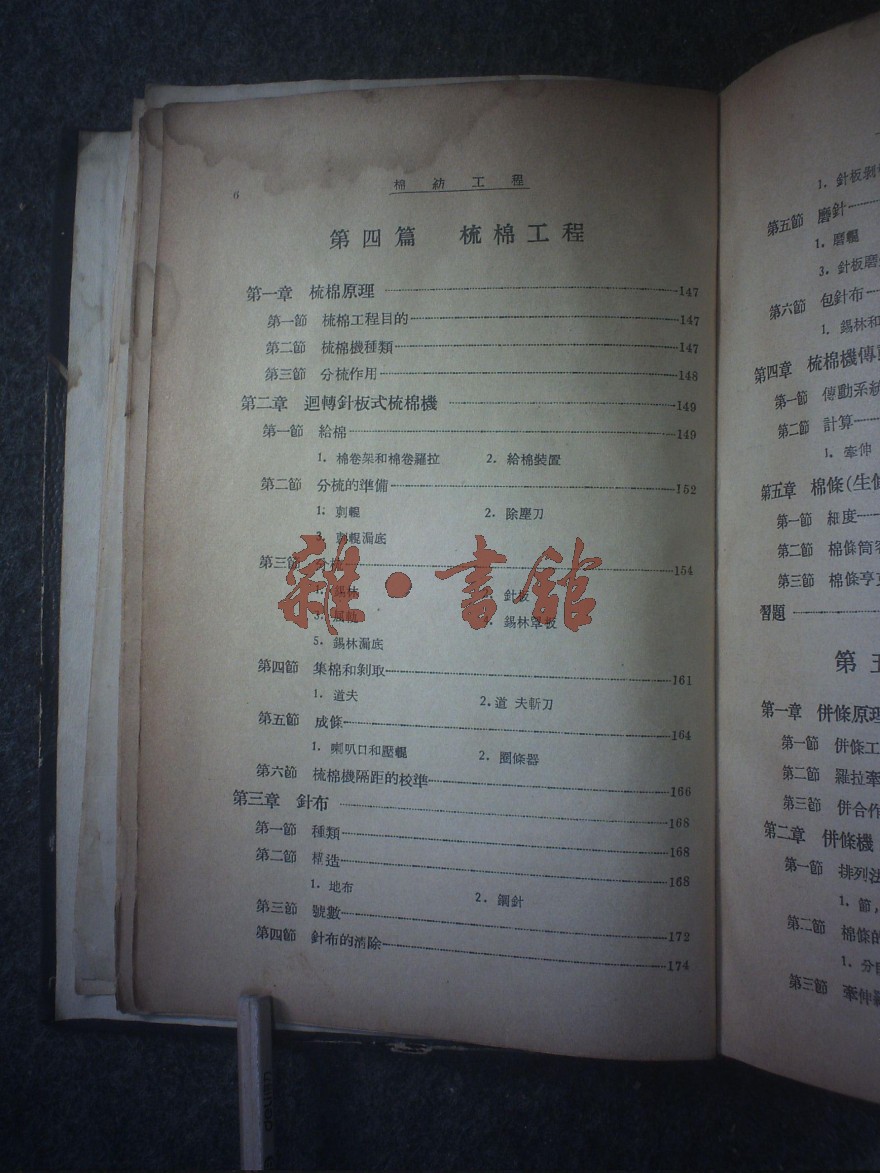 6
棉紡工程
第四篇 梳棉工程
第一章 梳棉原理 147
第一節 梳棉工程目的 147
第二節 梳棉機種類 147
第三節 分梳作用 148
第二章 迴轉針板式梳棉機 149
第一節 給棉 149
1. 棉卷架和棉卷羅拉 2. 給棉裝置
第二節 分梳的準備 152
1. 刺輥 2. 除塵刀
3. 刺輥漏底
第三節 分梳 154
1. 錫林 2. 針板
3. 4. 錫林罩板
5. 錫林漏底
第四節 集棉和剝取 161
1. 道夫 2. 道夫斬刀
第五節 成條 164
1. 喇叭口和壓輥 2. 圈條器
第六節 梳棉機隔距的校準 166
第三章 針布 168
第一節 種類 168
第二節 構造 168
1. 地布 2. 鋼針
第三節 號數 172
第四節 針布的清除 174
雜·書館
1. 針板剝
第五節 磨針
1. 磨輥
3. 針板磨
第六節 包針布
1. 錫林和
第四章 梳棉機傳
第一節 傳動系統
第二節 計算
1. 牽伸
第五章 棉條(生
第一節 細度
第二節 棉條筒容
第三節 棉條亨
習題
第五
第一章 併條原理
第一節 併條工
第二節 羅拉牽
第三節 併合作
第二章 併條機
第一節 排列法
1. 節,
第二節 棉條的
1. 分
第三節 牽伸羅